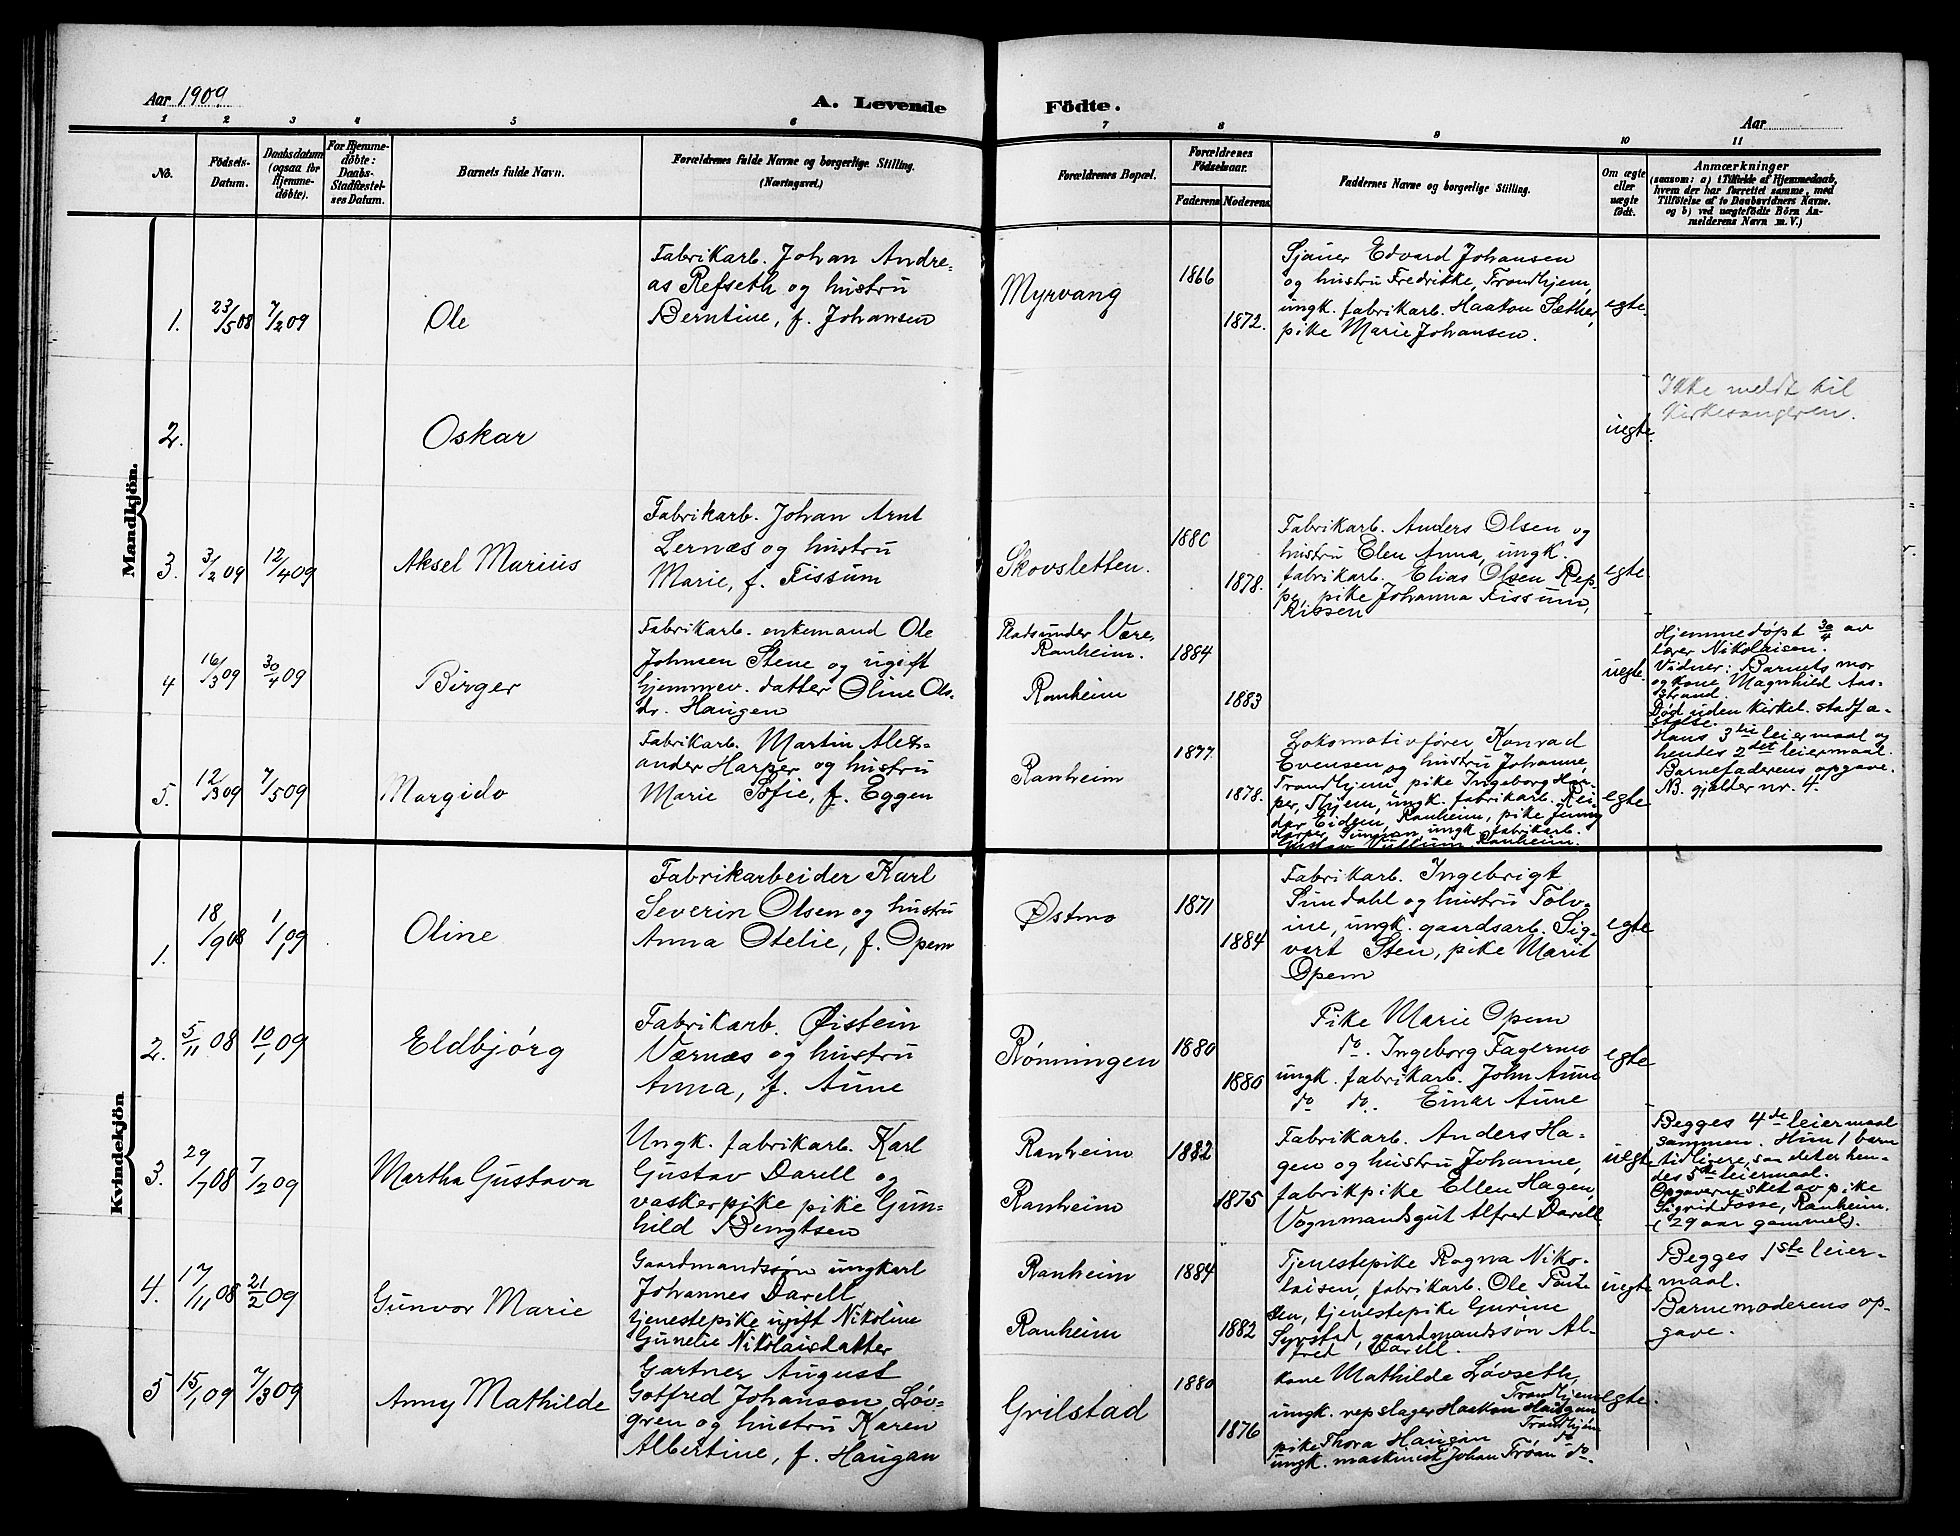 Aar 1909
A. Levende
Födte.
Aar
1 2 3 4 5 6 7 8 9 10 11
No.
Födsels-
Datum.
Daabsdatum
(ogsaa for
Hjemme-
döbte).
For Hjemme-
döbte:
Daabs-
Stadfæstel-
ses Datum.
Barnets fulde Navn.
Forældrenes fulde Navne og borgerlige Stilling.
(Næringsvei.)
Forældrenes Bopæl.
Forældrenes
Födselsaar.
Faderens Moderens
Faddernes Navne og borgerlige Stilling.
Om ægte
eller
uægte
födt.
Anmærkninger
(saasom: a) i Tilfælde af Hjemmedaab,
hvem der har forrettet samme, med
Tilföielse af to Daabsvidners Navne,
og b) ved uægtefödte Börn An-
melderens Navn m.V.)
Mandkjön.
1.
23/5 08
7/2 09
Ole
Fabrikarb. Johan Andre-
as Refseth og hustru
Berntine, f. Johansen
Myrvang
1866
1872.
Sjauer Edvard Johansen
og hustru Fredrikke, Trondhjem,
ungk. fabrikarb. Haakon Sæther,
pike Marie Johansen.
egte
2.
Oskar
uegte.
Ikke meldt til
Kirkesangeren.
3.
3/2 09
12/4 09
Aksel Marius
Fabrikarb. Johan Arnt
Lernæs og hustru
Marie, f. Fissum
Skovsletten.
1880
1878.
Fabrikarb. Anders Olsen og
hustru Elen Anna, ungk.
fabrikarb. Elias Olsen Rep-
pe, pike Johanna Fissum,
Rissen
egte
4
16/3 09
30/4 09
Birger
Fabrikarb. enkemand Ole
Johnsen Stene og ugift
hjemmev. datter Oline Ols-
dr. Haugen
Pladsunder Være,
Ranheim.
Ranheim
1884
1883
uegte.
Hjemmedøpt 30/4 av
lærer Nikolaisen.
Vidner: Barnets mor
og kone Magnhild Aas-
strand.
Død uden kirkel. stadfæ-
stelse.
Hans 3die leiermaal og
hendes 2det leiermaal.
Barnefaderens opgave.
NB. gjælder nr. 4.
5.
12/3 09
7/5 09
Margido
Fabrikarb. Martin Alex-
ander Harper og hustru
Marie Sofie, f. Eggen
Ranheim
1877
1878.
Lokomotivfører Konrad
Evensen og hustru Johanne,
Trondhjem, pike Ingeborg Har-
per, Thjem, ungk. fabrikarb. Rei-
dar Eidem, Ranheim, pike Jenny
Harper, ungk. fabrikarb.
Gustav Vullum, Ranheim.
egte
Kvindekjön
1.
18/9 08
1/1 09
Oline
Fabrikarbeider Karl
Severin Olsen og hustru
Anna Otelie, f. Opem
Østmo
1871
1884
Fabrikarb. Ingebrigt
Sundahl og hustru Tolv-
ine, ungk. gaardsarb. Sig-
vart Sten, pike Marit
Opem
egte
2.
5/11 08
10/1 09
Eldbjørg
Fabrikarb. Øistein
Værnæs og hustru
Anna, f. Aune
Rønningen
1880
1880
Pike Marie Opem
do. Ingeborg Fagermo
ungk. fabrikarb. John Aune
do do. Einar Aune
egte
3.
29/7 08
7/2 09
Martha Gustava
Ungk. fabrikarb. Karl
Gustav Darell og
vaskerpike pike Gun-
hild Bengtsen
Ranheim
Ranheim
1882
1875
Fabrikarb. Anders Ha-
gen og hustru Johanne,
fabrikpike Ellen Hagen,
Vognmandsgut Alfred Darell
uegte
Begges 4de leiermaal
sammen. Hun 1 barn
tidligere, saa det er hen-
des 5te leiermaal.
Opgaverne sket av pike
Sigrid Fosse, Ranheim.
(29 aar gammel).
4.
17/11 08
21/2 09
Gunvor Marie
Gaardmandssøn ungkarl
Johannes Darell
tjenestepike ugift Nikoline
Gunelie Nikolaisdatter
Ranheim
Ranheim
1884
1882
Tjenestepike Ragna Niko-
laisen, fabrikarb. Ole Pante
sen, tjenestepike Gurine
Syrstad, gaardmandssøn Al-
fred Darell.
uegte
Begges 1ste leier-
maal.
Barnemoderens op-
gave.
5
15/1 09
7/3 09
Anny Mathilde
Gartner August
Gotfred Johanson Løv-
gren og hustru Karen
Albertine, f. Haugan
Grilstad
1880
1876
Kone Mathilde Løvseth,
Trondhjem
ungk. repslager Haakon Haugan
Trondhjem
pike Thora Haugan do
ungk. maskinist Johan Trøan do.
egte.